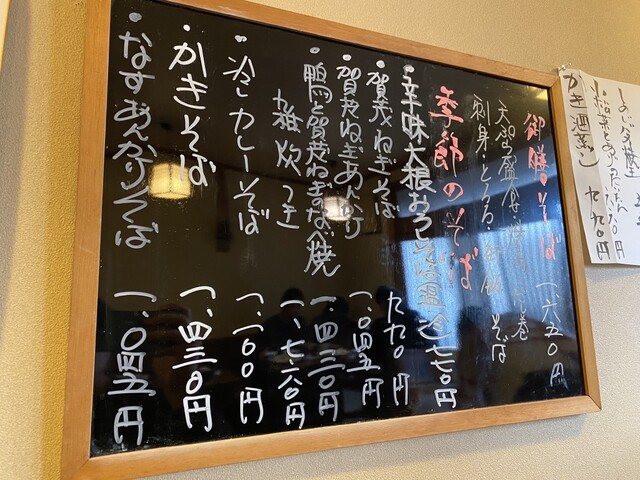 御膳そば 一、六五〇円
刺身・とろろ・ そば
季節のそば
辛味大根おろしそば温冷 七七〇円
・賀茂ねぎそば 九九〇円
・賀茂ねぎあんかけ 一、〇四五円
・鴨と賀茂ねぎのなべ焼 一、四三〇円
雑炊つき 一、七六〇円
・冷しカレーそば 一、一〇〇円
・かきそば 一、四三〇円
・なすあんかけそば 一、〇四五円
かき酒蒸し 九九〇円